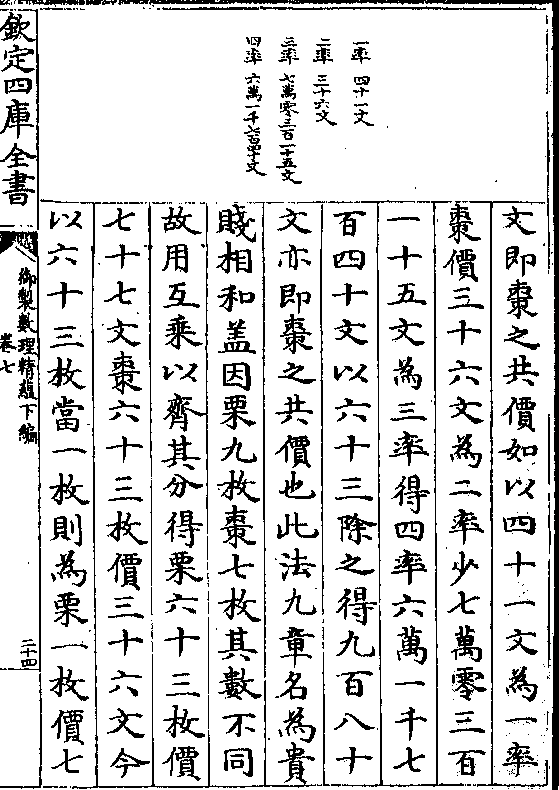 一率 四十一文
二率 三十六文
三率 七萬零三百一十五文
四率 六萬一千七百四十文
文即棗之共價如以四十一文為一率
棗價三十六文為二率少七萬零三百
一十五文為三率得四率六萬一千七
百四十文以六十三除之得九百八十
文亦即棗之共價也此法九章名為貴
賤相和盖因栗九枚棗七枚其數不同
故用互乘以齊其分得栗六十三枚價
七十七文棗六十三枚價三十六文今
以六十三枚當一枚則為栗一枚價七
欽定四庫全書
御製數理精蘊下編
卷七
二十四